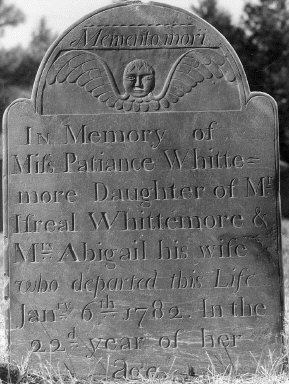 Memento mori
IN Memory of
Miſs Patiance Whitte=
more Daughter of Mr
Iſreal Whittemore &
Mrs Abigail his wife
who departed this Life
Janry 6th 1782. In the
22d year of her
Age